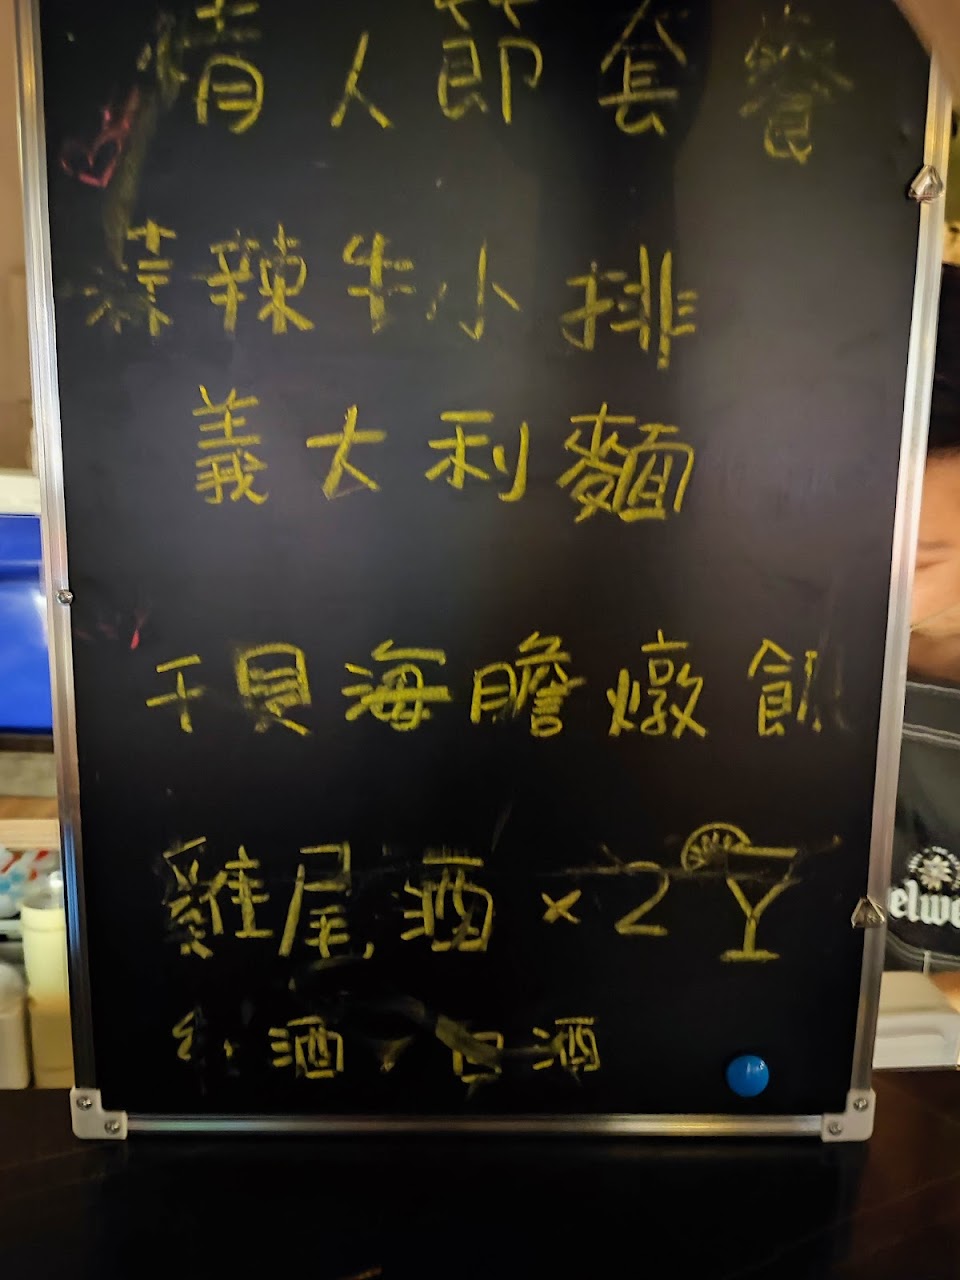 情人節套餐
蒜辣牛小排
義大利麵
干貝海膽燉飯
雞尾酒×2
紅酒、白酒
elwe